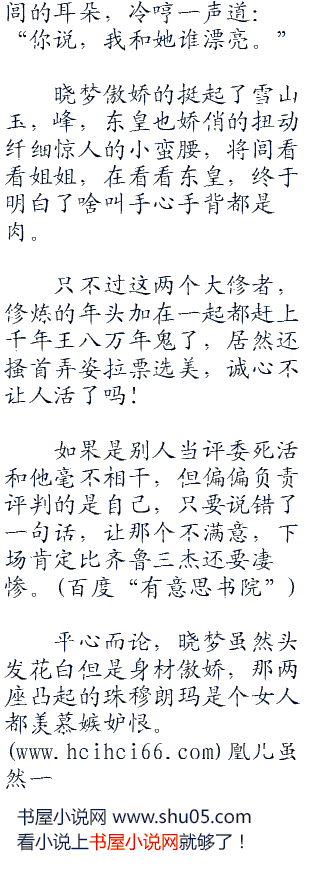 闾的耳朵，冷哼一声道：
“你说，我和她谁漂亮。”
晓梦傲娇的挺起了雪山
玉，峰，东皇也娇俏的扭动
纤细惊人的小蛮腰，将闾看
看姐姐，在看看东皇，终于
明白了啥叫手心手背都是
肉。
只不过这两个大修者，
修炼的年头加在一起都赶上
千年王八万年鬼了，居然还
搔首弄姿拉票选美，诚心不
让人活了吗！
如果是别人当评委死活
和他毫不相干，但偏偏负责
评判的是自己，只要说错了
一句话，让那个不满意，下
场肯定比齐鲁三杰还要凄
惨。(百度“有意思书院”)
平心而论，晓梦虽然头
发花白但是身材傲娇，那两
座凸起的珠穆朗玛是个女人
都羡慕嫉妒恨。
(www.hcihci66.com)凰儿虽
然一
书屋小说网 www.shu05.com
看小说上书屋小说网就够了！